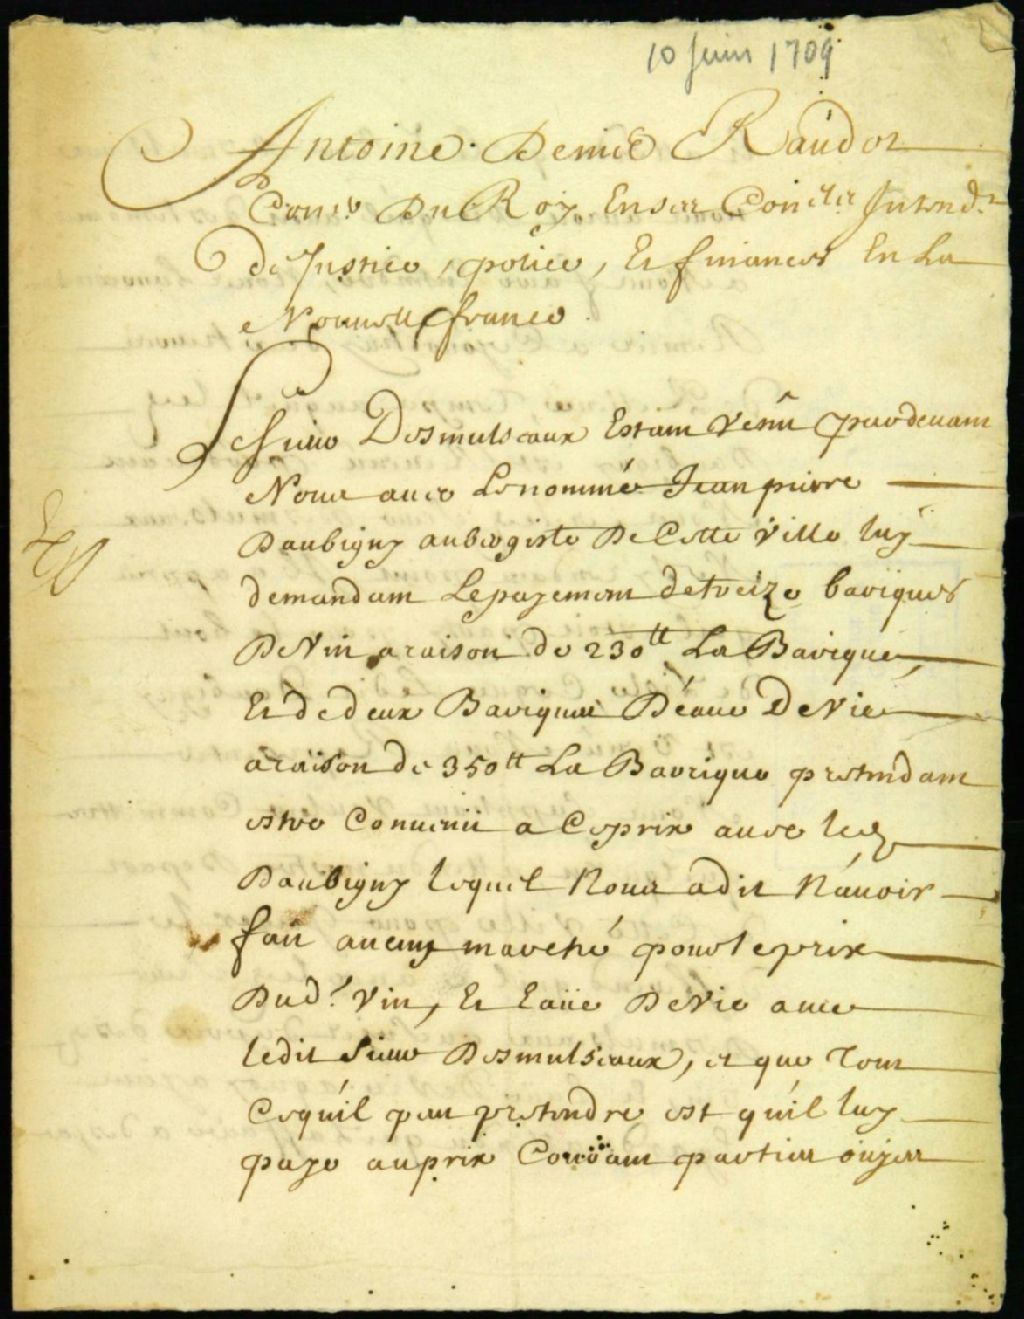 10 Juin 1709
Antoine Denis Raudot
Con.er Du Roy En ses Con.els Intend.t
de Justice, police, Et finances En La
Nouuelle france
Le Sieur Desmulseaux Estant Venu pardeuant
Nous auec Le nommé Jean pierre
Daubigny aubergiste De Cette Ville luy
demandant Le payement de treize bariques
De Vin a raison de 230tt La Barique,
Et de deux Bariques D'eaue De Vie
a raison de 350tt La Barique pretendant
estre Conuenu a Ce prix auec led.
Daubigny lequel Nous a dit N'auoir
fait aucuns marché pour le prix
Dud.t Vin, Et Eaüe De Vie auec
ledit Sieur Desmulseaux, et que tout
Ce qu'il peut pretendre est qu'il luy
paye au prix Courant parties ouyes